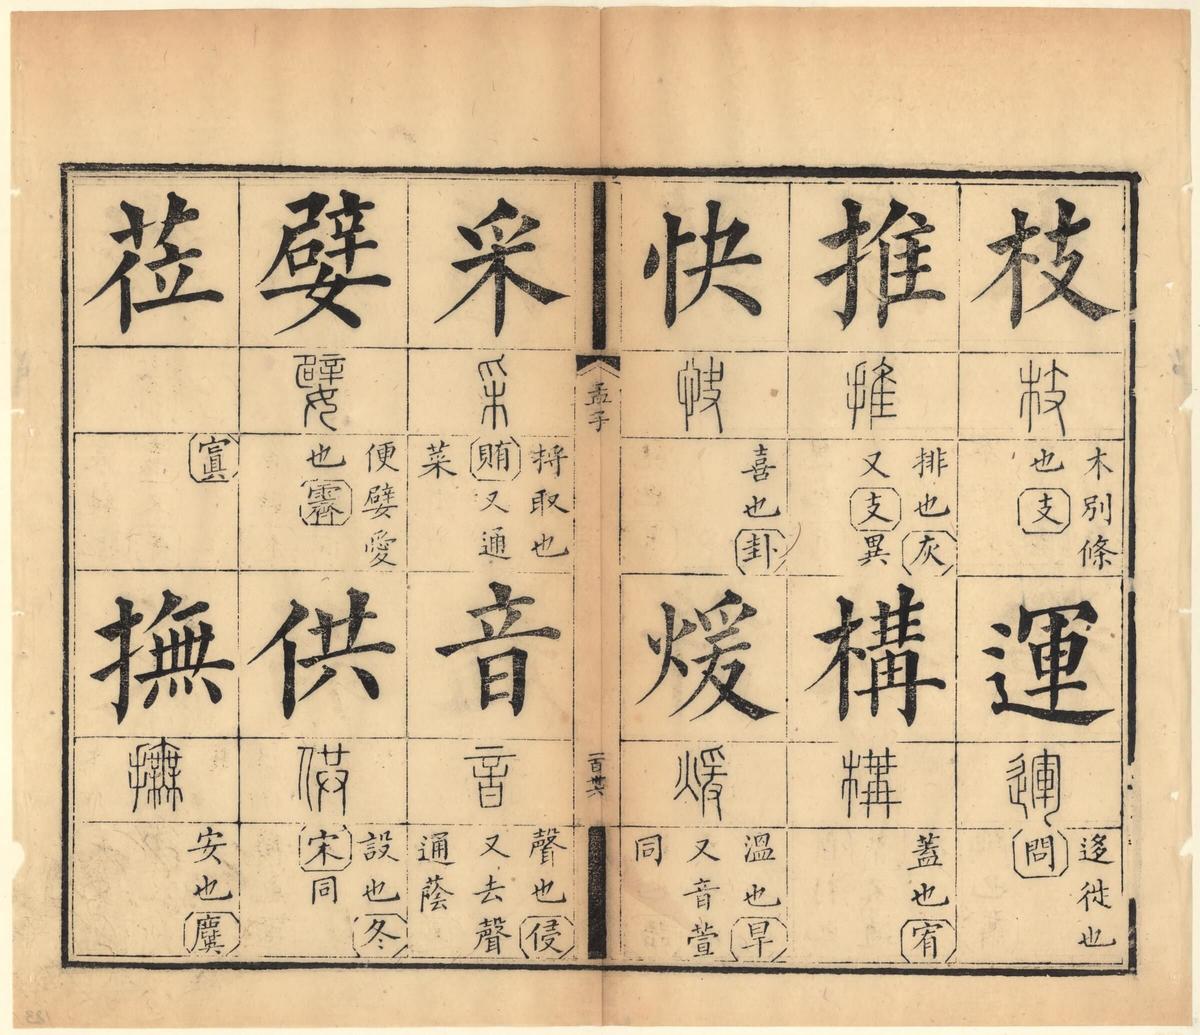 枝
枝
木別條
也支
運
運
迻徙也
問
推
推
排也灰
又支異
構
構
蓋也宥
快
快
喜也卦
煖
煖
溫也旱
又音萱
同
孟子
一百
采
采
捋取也
賄又通
菜
音
音
聲也侵
又去聲
通蔭
嬖
嬖
便嬖愛
也霽
供
供
設也冬
宋同
莅
寘
撫
撫
安也麌